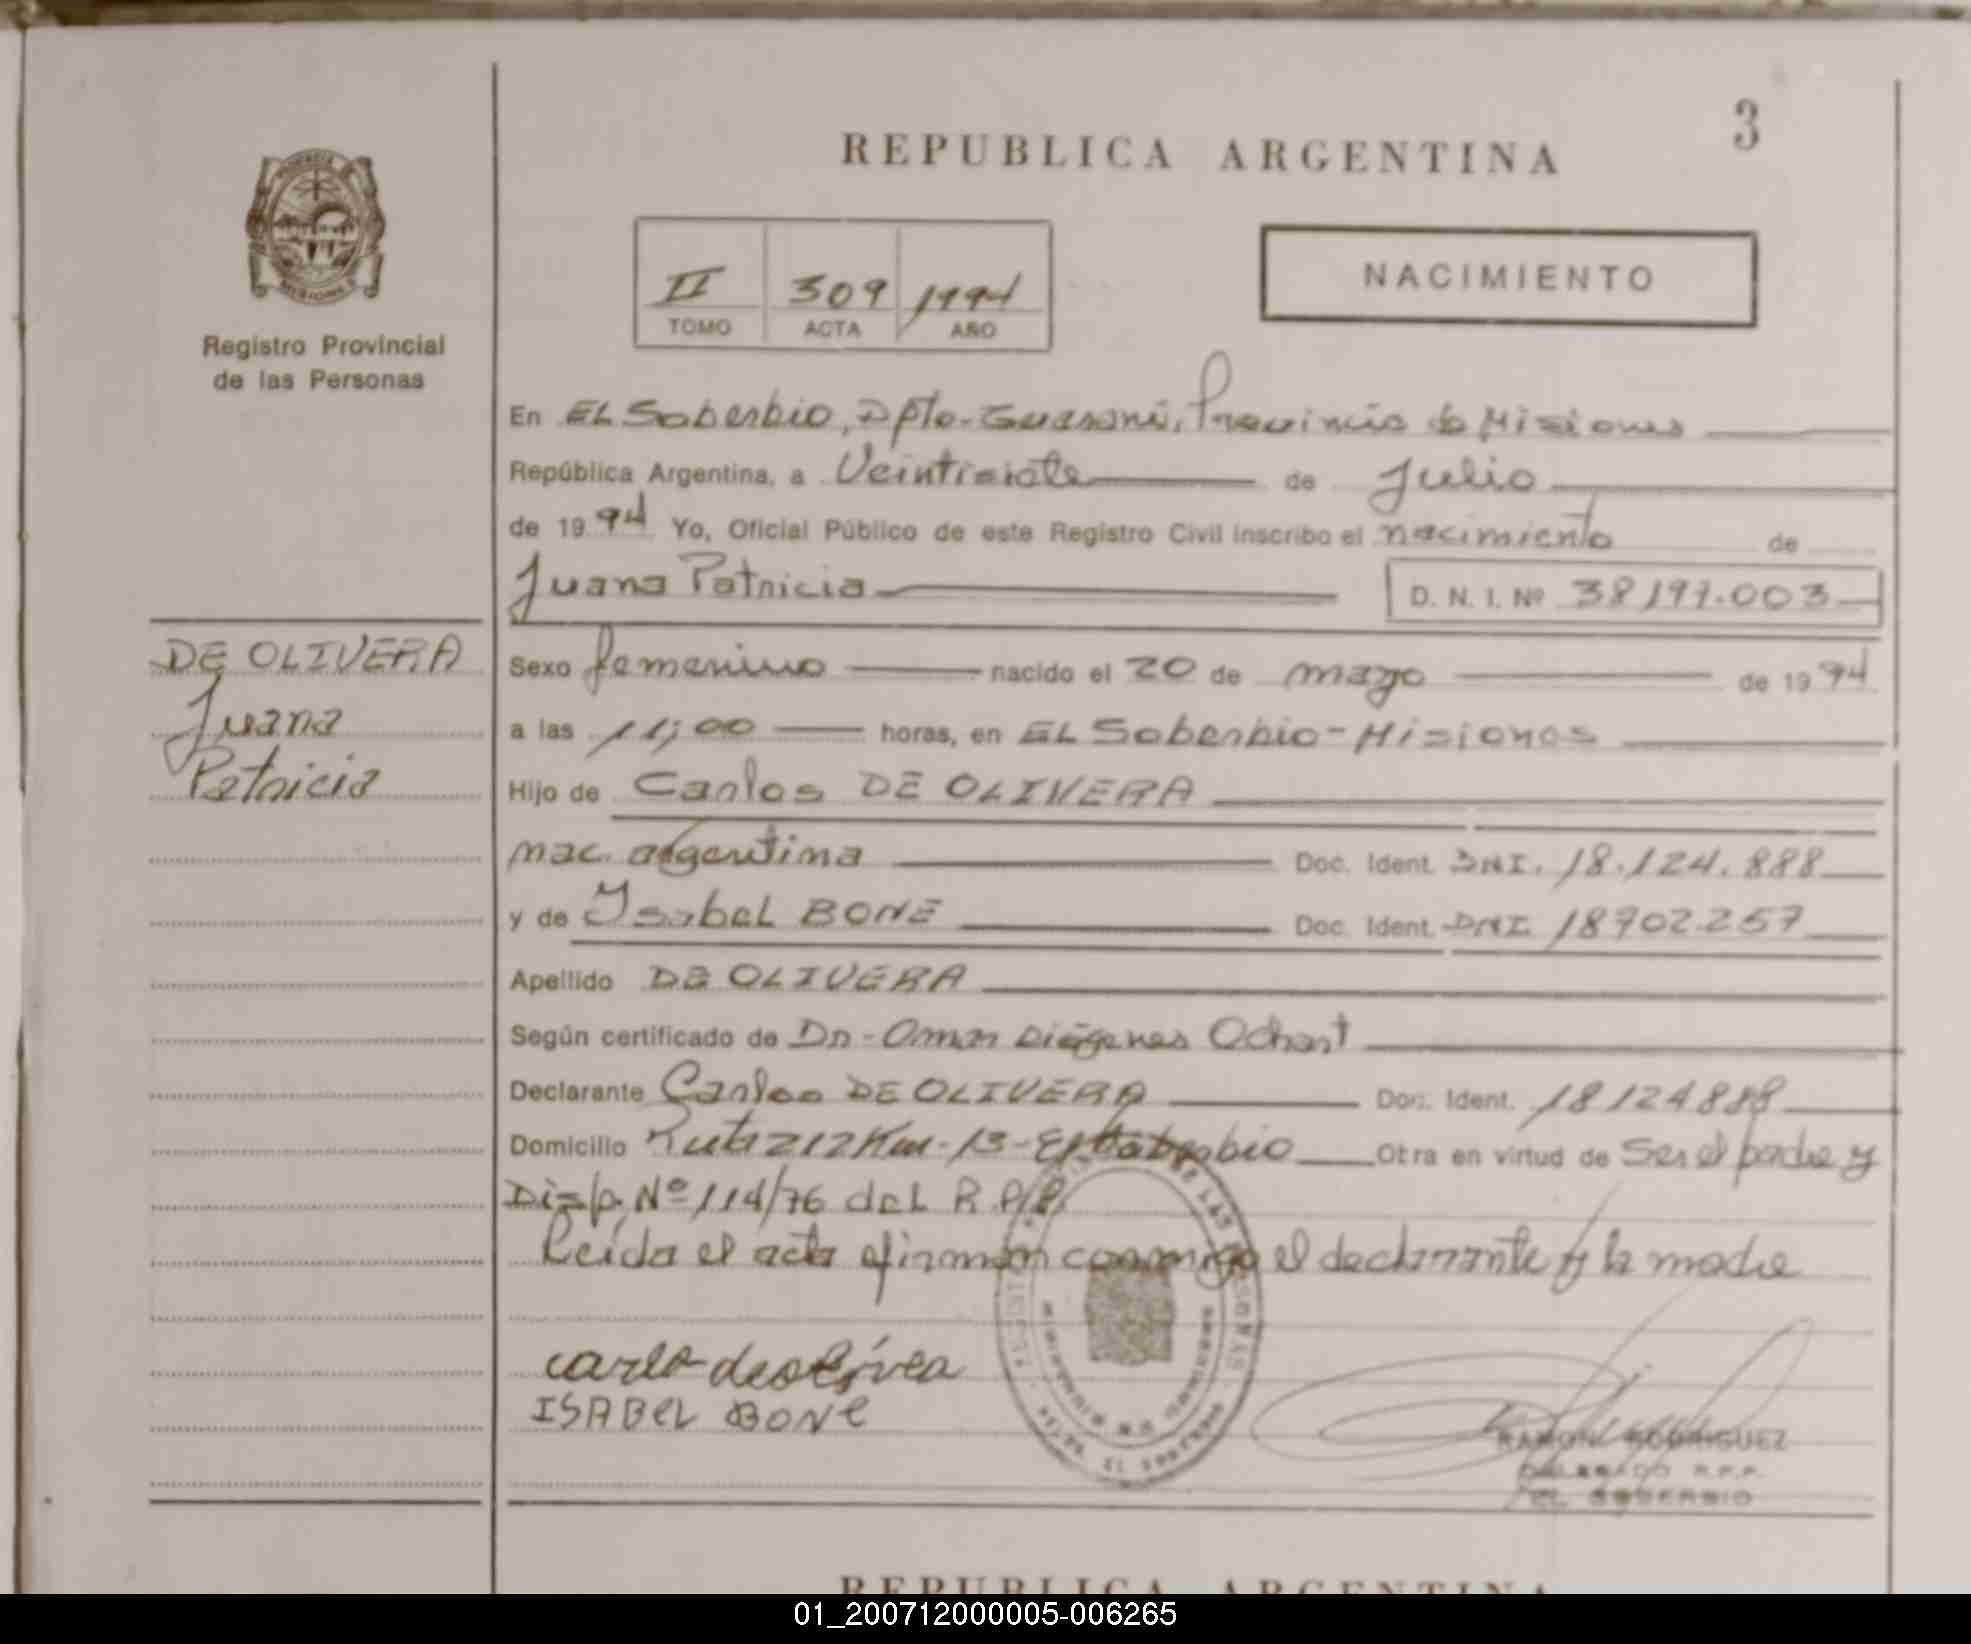 3
REPUBLICA ARGENTINA
II 309 1994
TOMO ACTA AÑO
NACIMIENTO
Registro Provincial
de las Personas
En EL Soberbio, Dpto. Guaraní, Provincia de Misiones
República Argentina, a Veintisiete de Julio
de 1994 Yo, Oficial Público de este Registro Civil inscribo el nacimiento de
Juana Patricia D. N. I. Nº 38197.003
DE OLIVERA
Juana
Patricia
Sexo femenino nacido el 20 de mayo de 1994
a las 11;00 horas, en EL Soberbio - Misiones
Hijo de Carlos DE OLIVERA
nac. argentina Doc. Ident. DNI. 18.124.888
y de Ysabel BONE Doc. Ident. DNI 18702.257
Apellido DE OLIVERA
Según certificado de Dr. Omar Diógenes
Declarante Carlos DE OLIVERA Doc. Ident. 18124888
Domicilio Ruta 212 Km - 13 - El Soberbio Otra en virtud de Ser el padre y
Disp. Nº 114/76 del R.P.P.
Leída el acta firman conmigo el declarante y la madre
ISABEL BONE
RAMON RODRIGUEZ
DELEGADO R.P.P.
EL SOBERBIO
REPUBLICA ARGENTINA
01_200712000005-006265